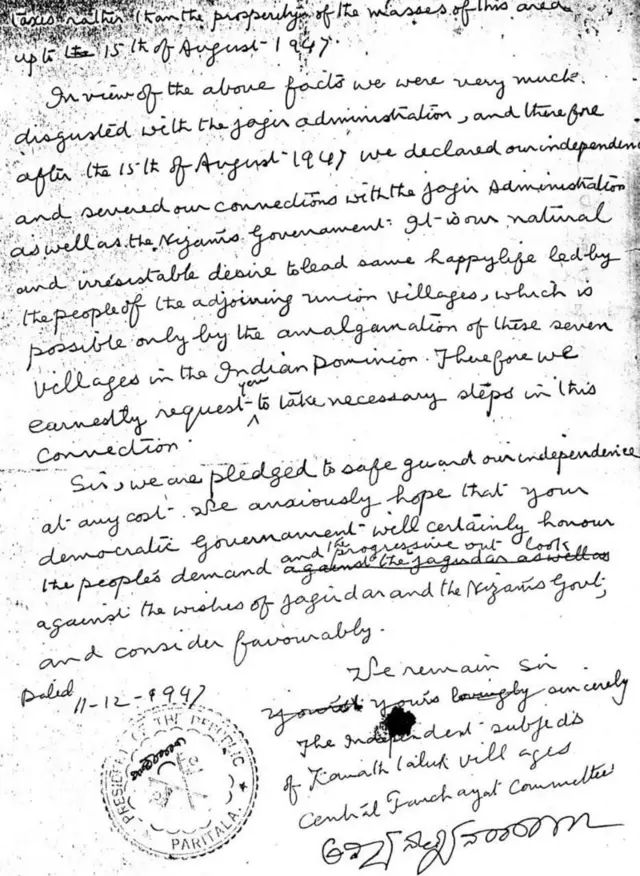 taxes rather than the prosperity of the masses of this area
up to the 15th of August 1947.
In view of the above facts we were very much
disgusted with the jagir administration, and therefore
after the 15th of August 1947 we declared our independen
and severed our connections with the jagir Administration
as well as the Nizam's Governament. It is our natural
and irresistable desire to lead same happy life led by
the people of the adjoining union villages, which is
possible only by the amalgamation of these seven
villages in the Indian Dominion. Therefore we
earnestly request you to take necessary steps in this
Connection.
Sir, we are pledged to safe guard our independence
at any cost. We anxiously hope that your
democratic Governament will certainly honour
the people's demand and the progressive out look
against the jagirdar as well as
against the wishes of Jagirdar and the Nizam's Govt;
and consider favourably.
We remain Sir
Dated 11-12-1947
yours lovingly sincerely
The Independent subjects
of taluk villages
Central Panchayat Committee
PRESIDENT OF THE REPUBLIC
PARITALA